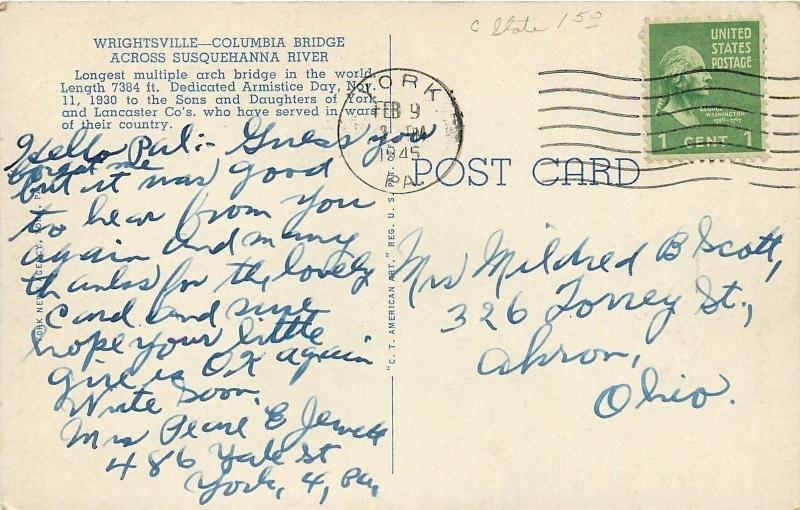 WRIGHTSVILLE—COLUMBIA BRIDGE
ACROSS SUSQUEHANNA RIVER
Longest multiple arch bridge in the world
Length 7384 ft. Dedicated Armistice Day, Nov.
11, 1930 to the Sons and Daughters of York
and Lancaster Co's. who have served in wars
of their country.
Hello Pal:- Guess you
forgot me
but it was good
to hear from you
again and many
thanks for the lovely
Card and sure
hope your little
girl is OK again
Write Soon.
Mrs Pearl E Jewett
486 Yale St
York, 4, Pa,
YORK NEWS AGENCY, YORK, PA.
"C. T. AMERICAN ART," REG. U. S. PAT. OFF.
C State 1 50
YORK
FEB 9
PM
1945
PA.
UNITED
STATES
POSTAGE
GEORGE
WASHINGTON
1789-1797
1 CENT 1
POST CARD
Mrs Mildred B Scott,
326 Torrey St.,
Akron,
Ohio.